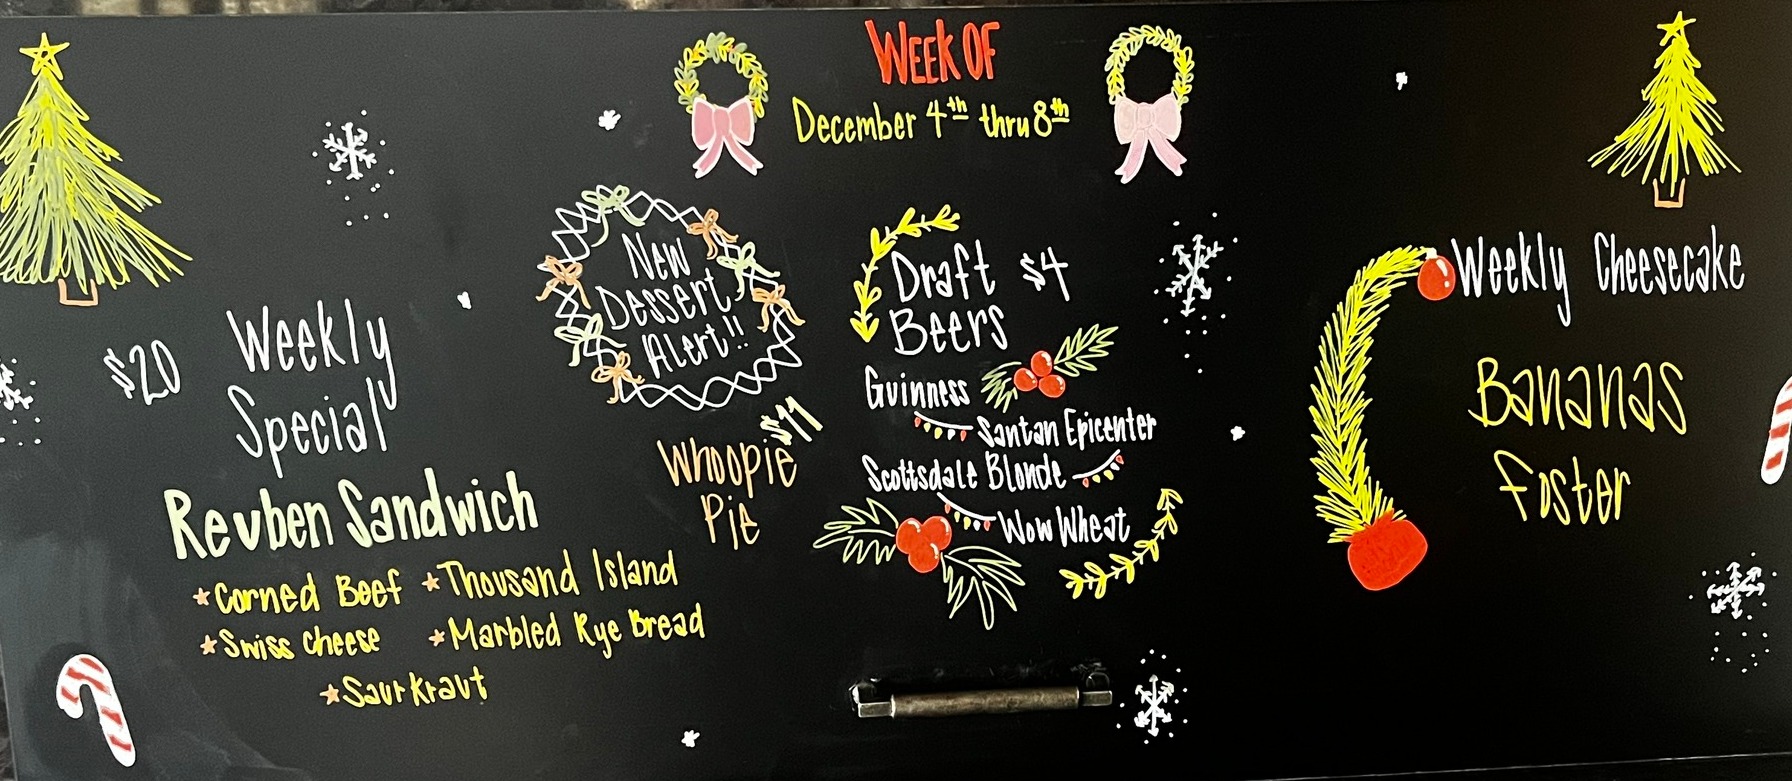 WEEK OF
December 4th thru 8th
$20
Weekly
Special
Reuben Sandwich
*Corned Beef *Thousand Island
*Swiss cheese *Marbled Rye Bread
*Saurkraut
New
Dessert
Alert!!
$11
Whoopie
Pie
Draft $4
Beers
Guinness
Santan Epicenter
Scottsdale Blonde
Wow Wheat
Weekly Cheesecake
Bananas
Foster